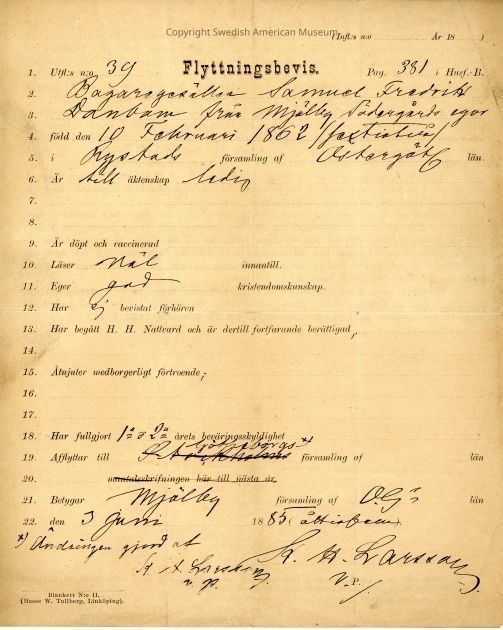 Copyright Swedish American Museum
(Infl:s n:o År 18 )
Flyttningsbevis.
1. Utfl:s n:o 39 Pag. 381 i Husf.-B.
2. Bagaregesällen Samuel Fredrik
3. Danbom från Mjölby Södergårds egor
4. född den 10 Februari 1862 (sextiotvå)
5. i Rystads församling af Östergötl län.
6. Är till äktenskap ledig
7.
8.
9. Är döpt och vaccinerad
10. Läser väl innantill.
11. Eger god kristendomskunskap.
12. Har ej bevistat förhören
13. Har begått H. H. Nattvard och är dertill fortfarande berättigad,
14.
15. Åtnjuter medborgerligt förtroende,
16.
17.
18. Har fullgjort 1a o 2a årets beväringsskyldighet
Göteborgs x)
19. Afflyttar till Stockholms församling af län
20. mantalsskrifningen här till nästa år.
21. Betygar Mjölby församling af Ö.G:s län
22. den 3 Juni 1885 (åttiofem)
x) Ändringen gjord af
K. A. Larsson
v. p.
K. A. Larsson
V. P.
Blankett N:o II.
(Hasse W. Tullberg, Linköping).